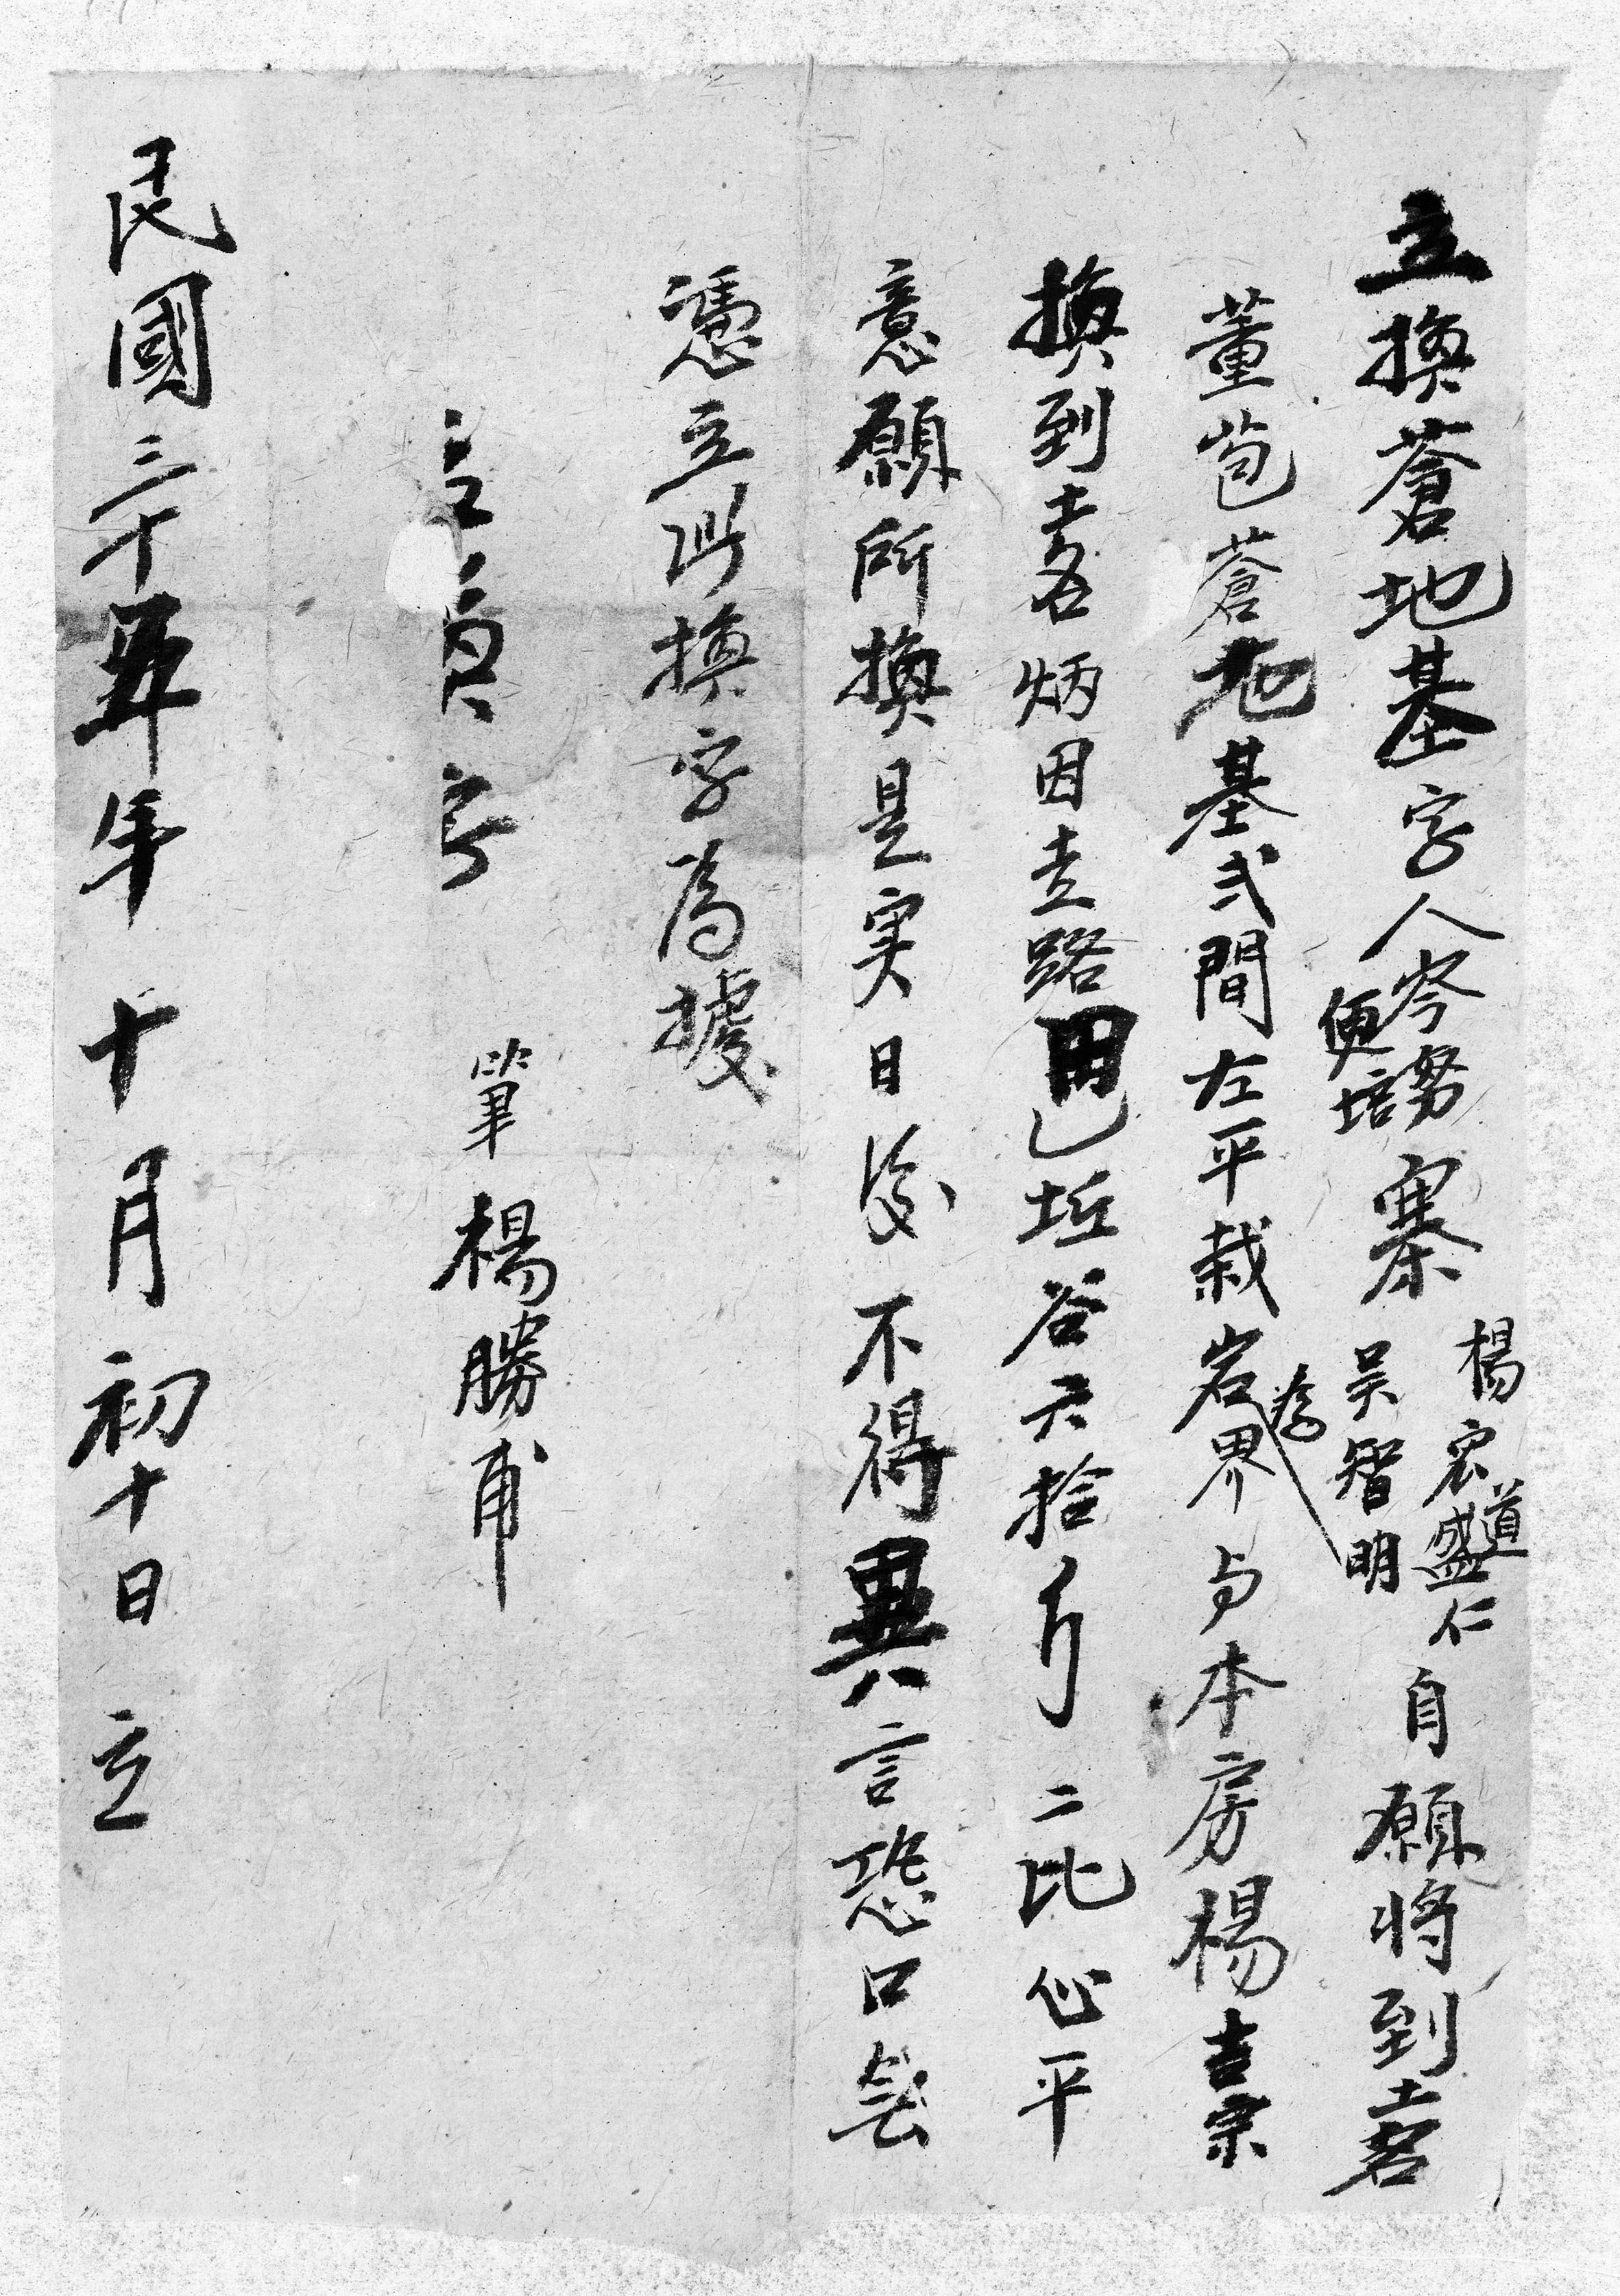 立換蒼地基字人岑努寨楊宏道盛仁自願將到土名
便培吳智明
董苞蒼地基弍間左平栽岩為界与本房楊吉宗
換到土名炳因走路坵谷六拾斤二比心平
意願所換是実日後不得異言恐口無
憑立此換字為據
筆楊勝甫
民國三十五年十月初十日立